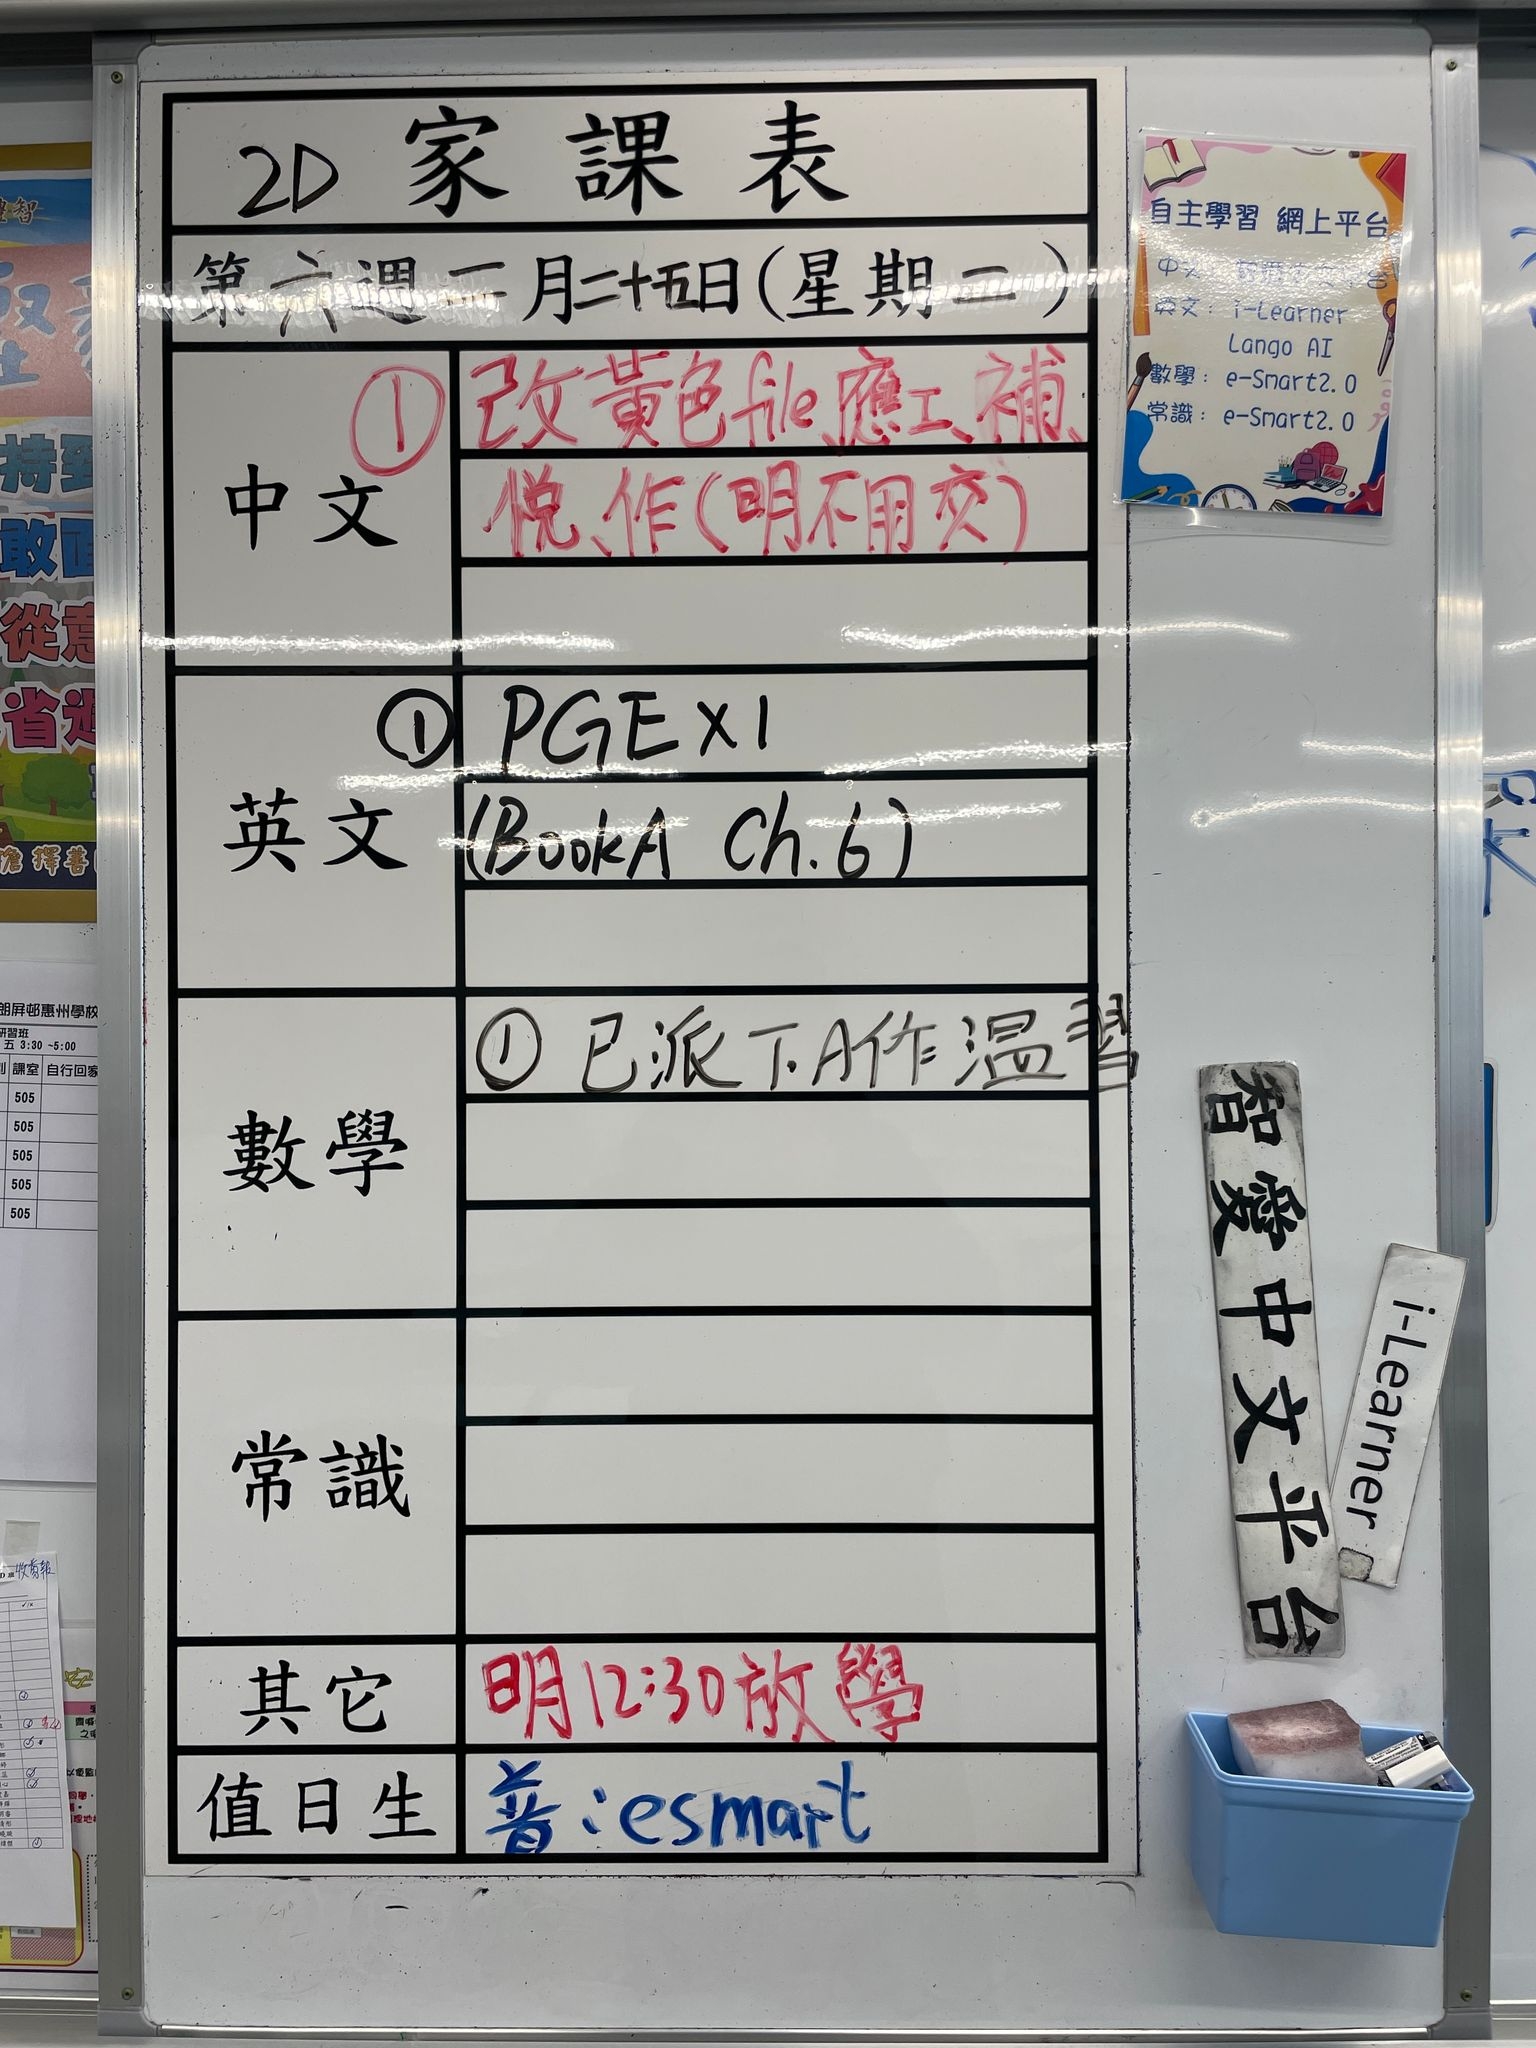 2D 家課表
第六週二月二十五日(星期二)
中文
① 改黃色file、應工、補、
悅、作(明不用交)
英文
① PGE x1
(Book A Ch. 6)
數學
① 已派下A作溫習
常識
其它
明12:30放學
值日生
普:esmart
自主學習 網上平台
中文:
英文: i-Learner
Lango AI
數學: e-Smart2.0
常識: e-Smart2.0
智愛中文平台
i-Learner
持
敢
從意
省
擇善
朗屏邨惠州學校
研習班
五 3:30 ~5:00
課室 自行回家
505
505
505
505
505